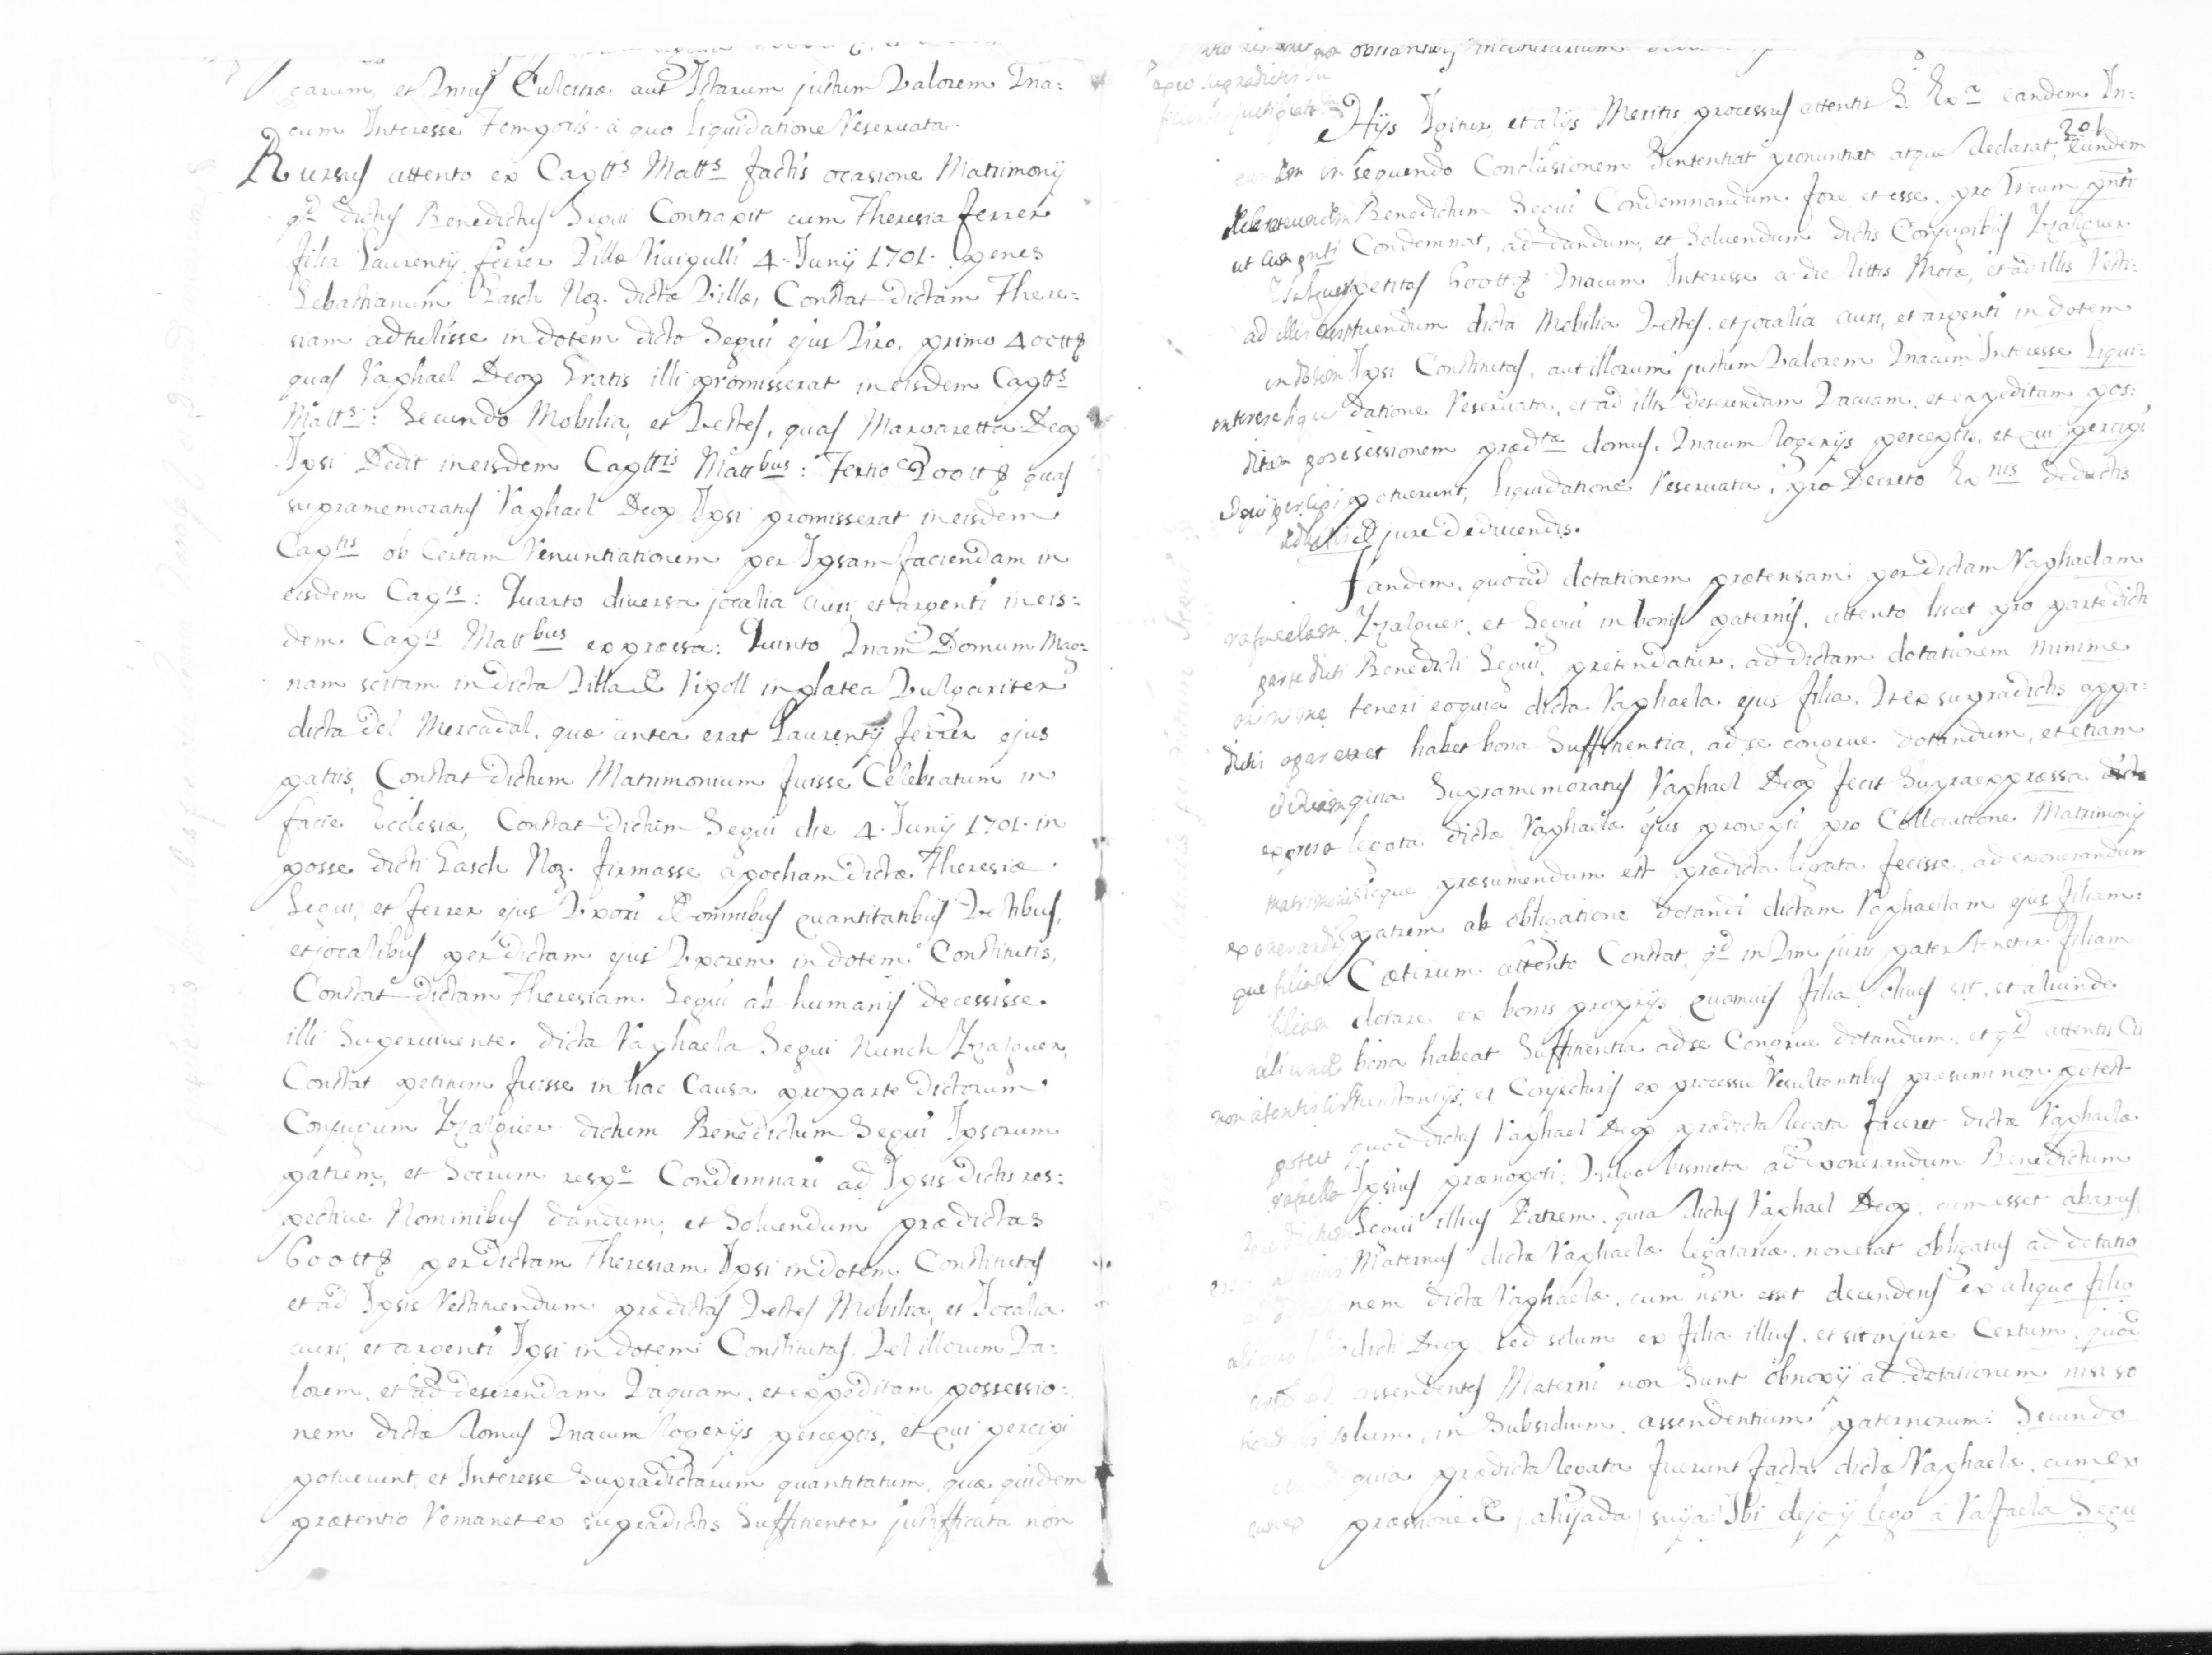 carum, et Unius Culcitræ aut Istarum justum Valorem Una:
cum Interesse Temporis à quo Liquidatione Reservata.
Rursus attento ex Capttˢ Mattˢ factis ocasione Matrimony
qᵈ dictus Benedictus Segui Contraxit cum Theresia Ferrer
filia Laurentij Ferrer Villæ Rivipulli 4 Junij 1701. penes
Sebastianum Lasch Noz. dictæ Villæ, Constat dictam There:
siam adtulisse in dotem dicto Segui ejus Viro, primo 400 tt
quas Raphael Deop Gratis illi promisserat in eisdem Capttˢ
Mattˢ: Secundo Mobilia, et Vestes, quas Margaretta Deop
Ipsi Dedit in eisdem Captᵗⁱˢ Mattᵇᵘˢ: Tertio 200 tt quas
supramemoratus Raphael Deop Ipsi promisserat in eisdem
Capᵗⁱˢ ob Certam Renuntiationem per Ipsam faciendam in
eisdem Capⁱˢ: Quarto diversa jocalia auri, et argenti in eis:
dem Capⁱˢ Mattᵇᵘˢ expressa: Quinto Unam Domum Mag:
nam scitam in dicta Villa de Ripoll in platea Vulgariter
dicta del Mercadal, quæ antea erat Laurentij Ferrer ejus
patris, Constat dictum Matrimonium fuisse Celebratum in
facie Ecclesiæ, Constat dictum Segui die 4 Junij 1701. in
posse dicti Lasch Noz. firmasse apocham dictæ Theresiæ
Segui, et Ferrer ejus Uxori de omnibus quantitatibus Vestibus,
et jocalibus per dictam ejus Uxorem in dotem Constitutis,
Constat dictam Theresiam Segui ab humanis decessisse
illi Supervivente dicta Raphaela Segui Nunch Yzalguer,
Constat petitum fuisse in hac Causa pro parte dictorum
Conjugum Yzalguer dictum Benedictum Segui Ipsorum
patrem, et Socrum respᵉ Condemnari ad Ipsis dictis res:
pective Nominibus dandum, et Solvendum prædictas
600 tt per dictam Theresiam Ipsi in dotem Constitutas
et ad Ipsis Restituendum prædictas Vestes Mobilia, et Jocalia
auri, et argenti Ipsi in dotem Constitutas, Vel illorum Va:
lorem, et ad deserendam Vaquam, et expeditam possessio:
nem dictæ domus Unacum logerijs perceptis, et qui percipi
potuerunt, et Interesse Supradictarum quantitatum, quæ quidem
prætentio Remanet ex supradictis Suffitienter justifficata non
obstantibus
ex supradictis su
ficienter justificata
Hijs Igitur, et alijs Meritis processus attentis S. Exᵃ eandem In:
201
insequendo Conclusionem Sententiat pronuntiat atque declarat, eundem
Benedictum Segui Condemnandum fore, et esse, pro Ut cum pnti
ut cum pnti Condemnat, ad dandum, et Solvendum dictis Conjugibus Yzalguer
Yzalguer petitas 600 tt Unacum Interesse a die littis Motæ, et ad illis Resti:
ad illis tuendum dicta Mobilia Vestes, et jocalia auri, et argenti in dotem
in dotem Ipsi Constitutas, aut illorum justum Valorem Unacum Interesse Liqui:
interese liqui datione Reservata, et ad illis deserendam Vacuam, et expeditam pos:
ditam possessionem prædᵗᵃᵉ domus, Unacum logerijs perceptis, et qui percipi
et qui percipi potuerunt, Liquidatione Reservata, pro Decreto Exⁿⁱˢ deductis
deductis de jure deducendis.
Tandem, quoad dotationem prætensam per dictam Raphaelam
rafaelam Yzalguer, et Segui in bonis paternis, attento liscet pro parte dicti
parte dicti Benedicti Segui, pretendatur, ad dictam dotationem minime
minime teneri eo quia dicta Raphaela ejus filia, Ut ex supradictis appa:
dictis aparet ret habet bona Suffitientia, ad se congrue dotandum, et etiam
et etiam quia Supramemoratus Raphael Deop fecit Supraexpressa
expresa legata dictæ Raphaelæ ejus pronepti pro Collocatione Matrimony
matrimonii sicque præsumendum est prædicta legata fecisse, ad exonerandum
exonerandum patrem ab obligatione dotandi dictam Raphaelam ejus filiam:
que filiam Cæterum attento Constat, qᵈ in Vim juris pater tenetur filiam
filiam dotare ex bonis proprijs quamvis filia dives sit, et aliunde
aliunde bona habeat Suffitientia ad se Congrue dotandum, et qᵈ attentis Cir
non atentis cirCunstantijs, et Conjecturis ex processu Resultantibus præsumi non potest
potest quod dictus Raphael Deop prædicta legata faceret dictæ Raphaelæ
rafaella Ipsius prænepoti, Vulgo bisnieta ad exonerandum Benedictum
Segui illius Patrem, quia dictus Raphael Deop, cum esset abavus
Maternus dictæ Raphaelæ legatariæ, non erat obligatus ad dotatio
nem dictæ Raphaelæ, cum non esset decendens ex aliquo filio
dicti Deop sed solum ex filia illius, et sit in jure Certum, quod
assendentes Materni non Sunt obnoxij ad dotationem nisi so
solum, in Subsidium assendentium paternorum: Secundo
quia prædicta legata fuerunt facta dictæ Raphaelæ, cum ex
cum ex præssione de ahijada suya: Ibi dejo y lego à Rafaela Segu